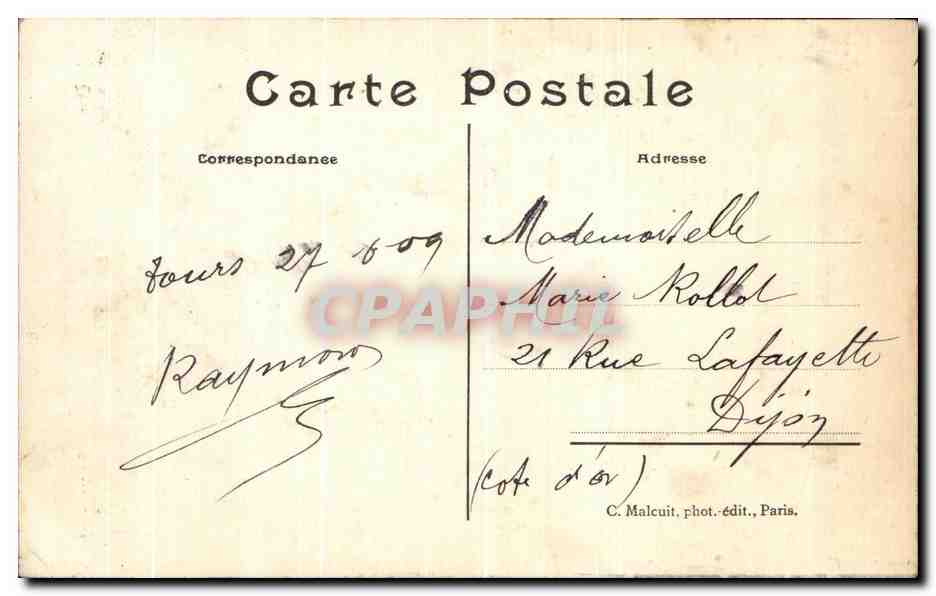 Carte Postale
Correspondance
Tours 27 6 09
Raymond
Adresse
Mademoiselle
Marie Rollot
21 Rue Lafayette
Dijon
(Cote d'or)
C. Malcuit, phot.-édit., Paris.
CPAPHIL